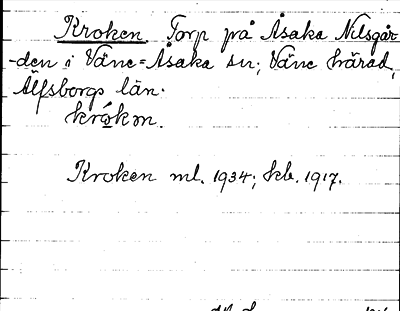 Kroken Torp på Åsaka Nilsgår-
-den i Väne-Åsaka sn; Väne härad,
Älfsborgs län.
krókɷn.
Kroken ml. 1934; kb. 1917.